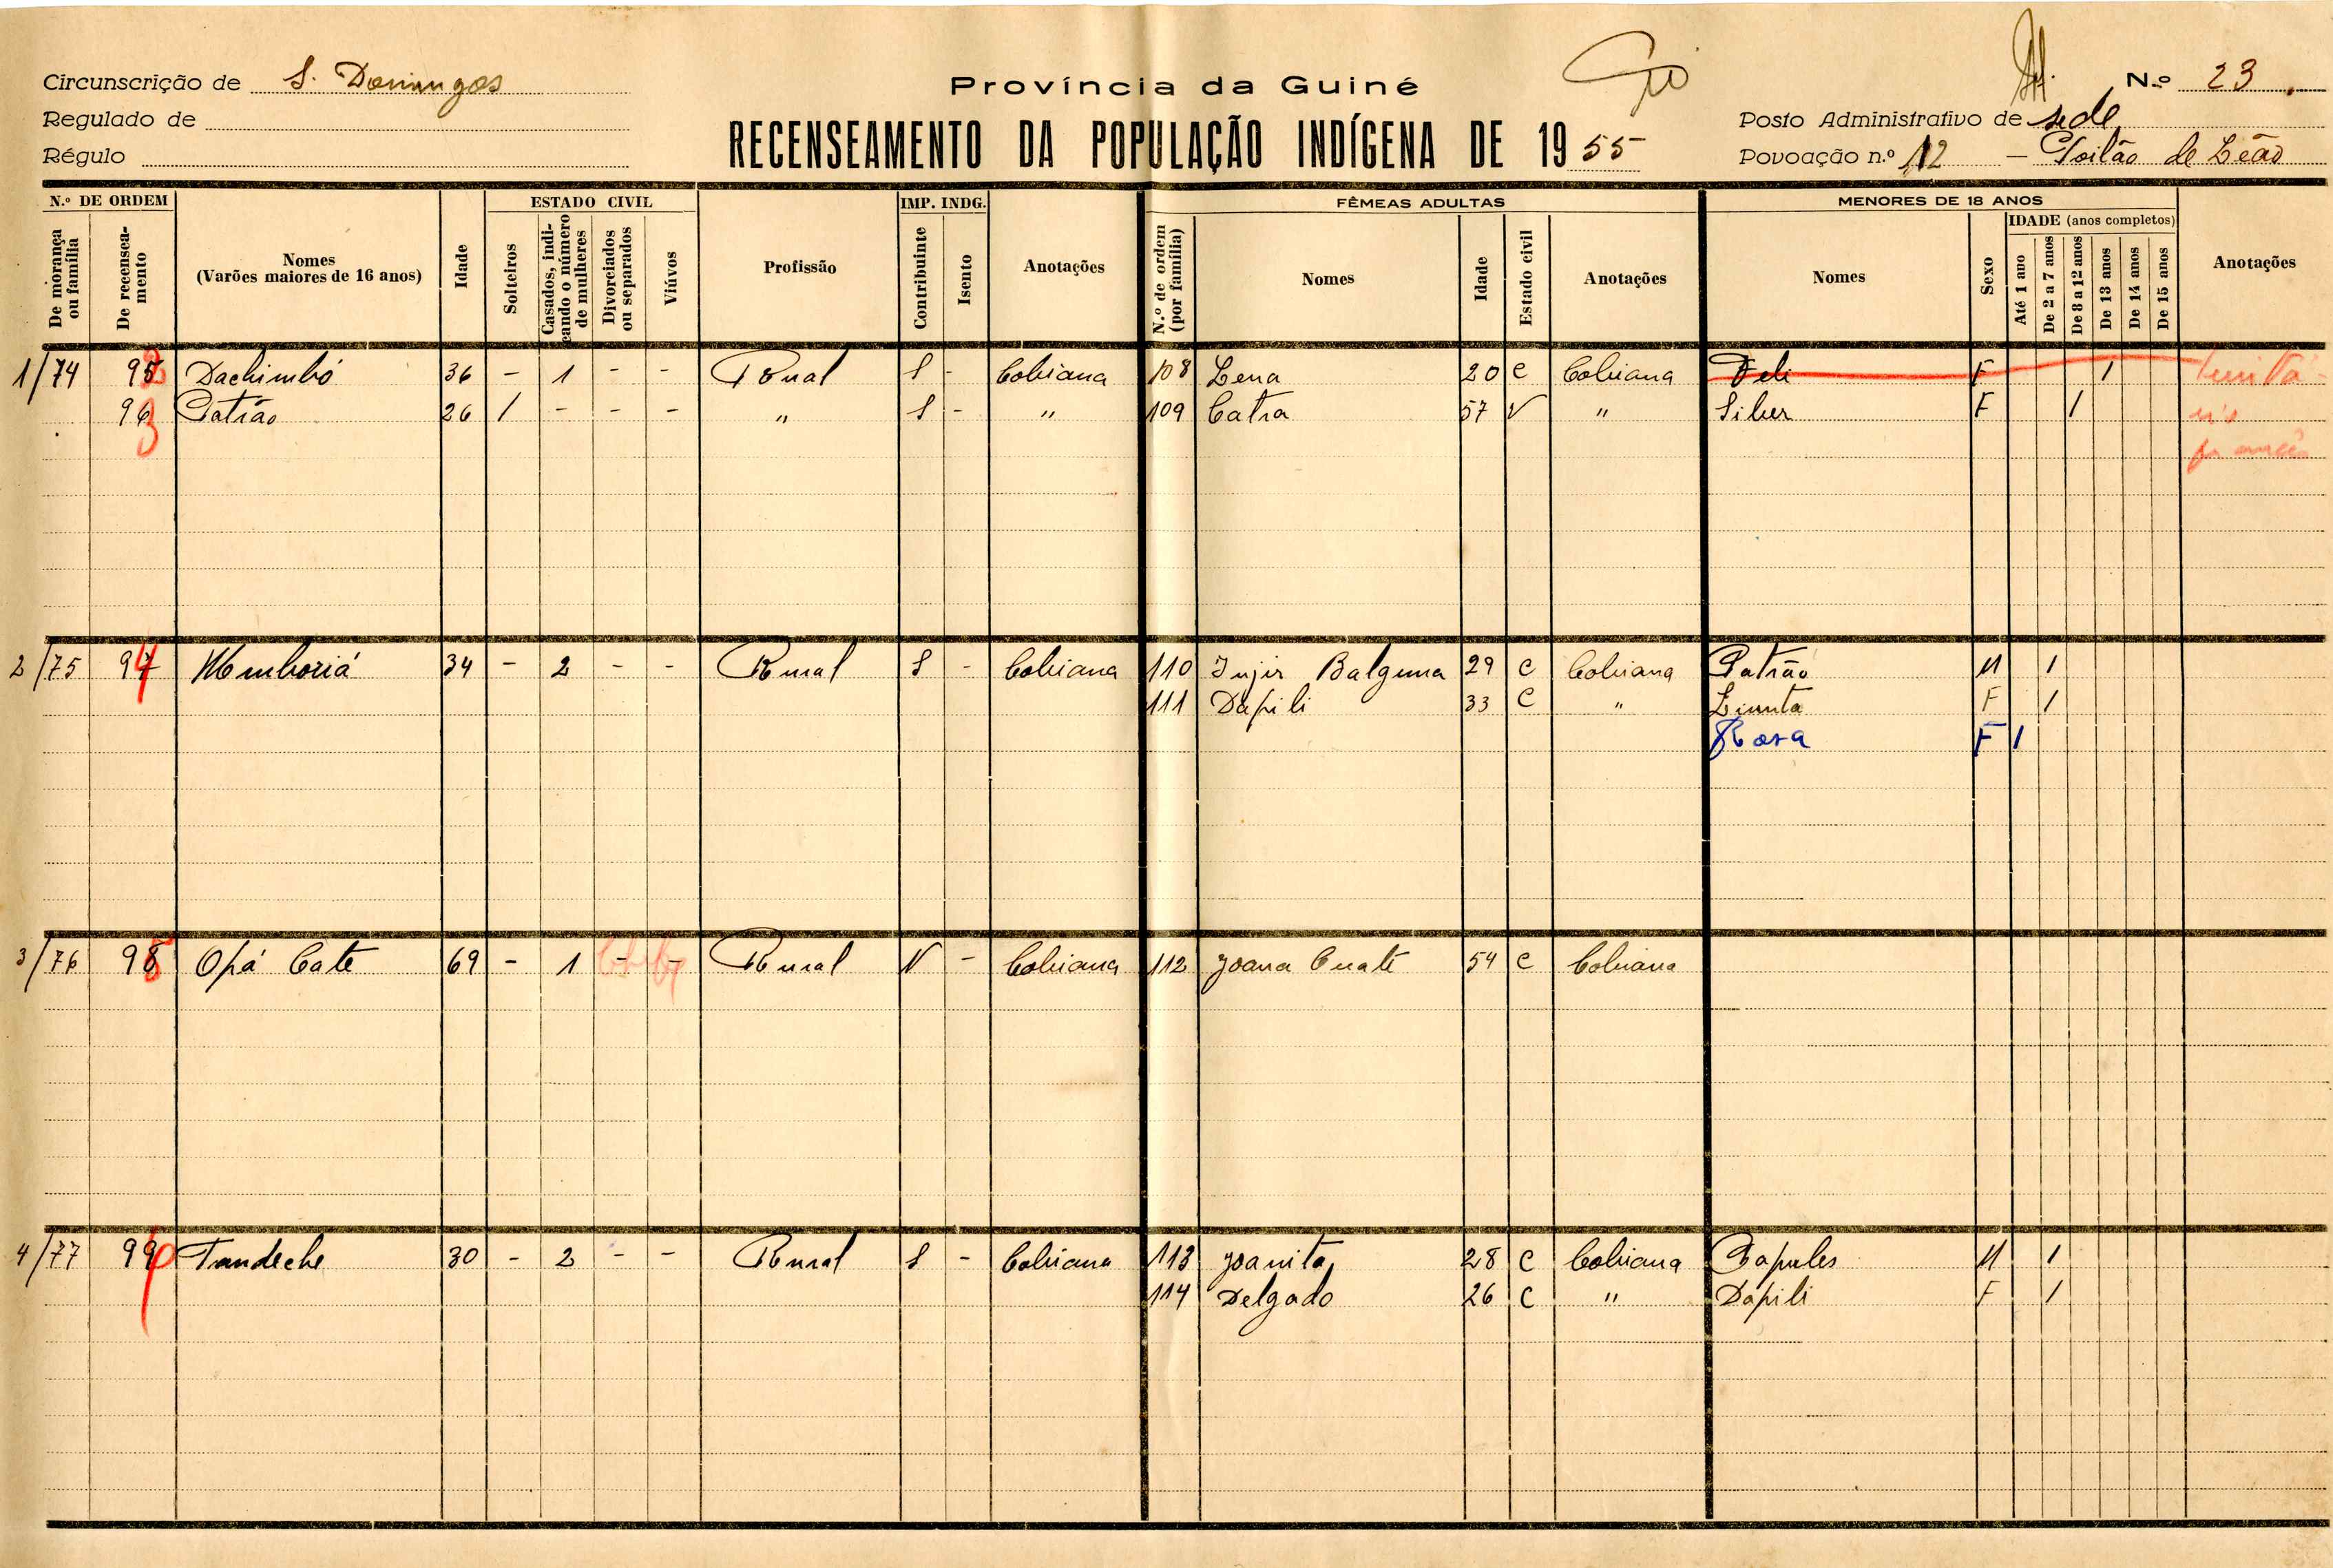 Circunscrição de S. Domingos
Província da Guiné
N.º 23
Regulado de
Posto Administrativo de sede
Régulo
RECENSEAMENTO DA POPULAÇÃO INDÍGENA DE 1955
Povoação n.º 12 – Poilão de Leão
N.º DE ORDEM
ESTADO CIVIL
IMP. INDG.
FÊMEAS ADULTAS
MENORES DE 18 ANOS
IDADE (anos completos)
De morança ou família
De recenseamento
Nomes (Varões maiores de 16 anos)
Idade
Solteiros
Casados, indicando o número de mulheres
Divorciados ou separados
Viúvos
Profissão
Contribuinte
Isento
Anotações
N.º de ordem (por família)
Nomes
Idade
Estado civil
Anotações
Nomes
Sexo
Até 1 ano
De 2 a 7 anos
De 8 a 12 anos
De 13 anos
De 14 anos
De 15 anos
Anotações
1/74 95 Dachimbó 36 - 1 - - Rural S - Cobiana 108 Lena 20 C Cobiana Feli F 1
96 Patrão 26 1 - - - " S - " 109 Catra 57 V " Siber F 1
2/75 97 Memboriá 34 - 2 - - Rural S - Cobiana 110 Injir Balguma 29 C Cobiana Patrão M 1
111 Dapili 33 C " Liunta F 1
Rosa F 1
3/76 98 Opá Cate 69 - 1 - - Rural N - Cobiana 112 Joana Cuate 54 C Cobiana
4/77 99 Tandeche 30 - 2 - - Rural S - Cobiana 113 Joanita 28 C Cobiana Papules M 1
114 Delgado 26 C " Dapili F 1